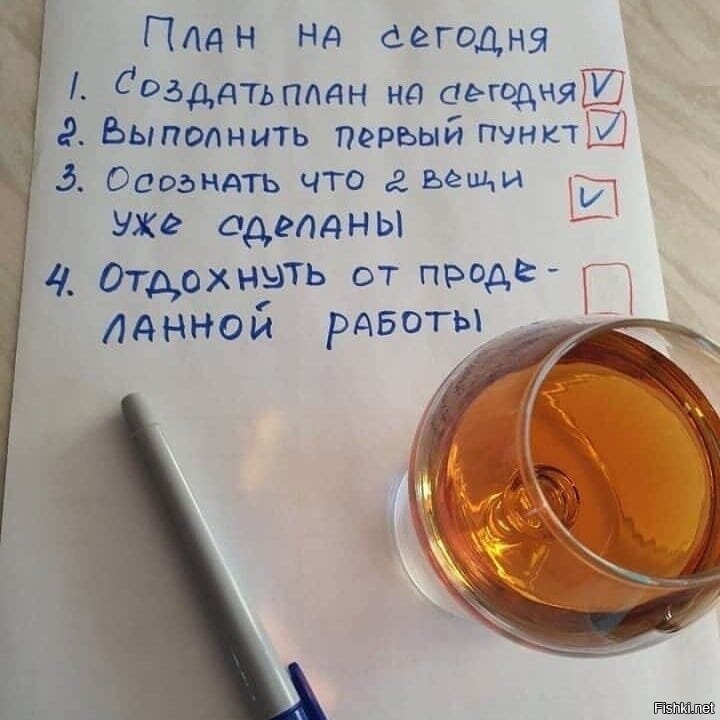 План на сегодня
1. Создать план на сегодня
2. Выполнить первый пункт
3. Осознать что 2 вещи
уже сделаны
4. Отдохнуть от проде-
ланной работы
Fishki.net